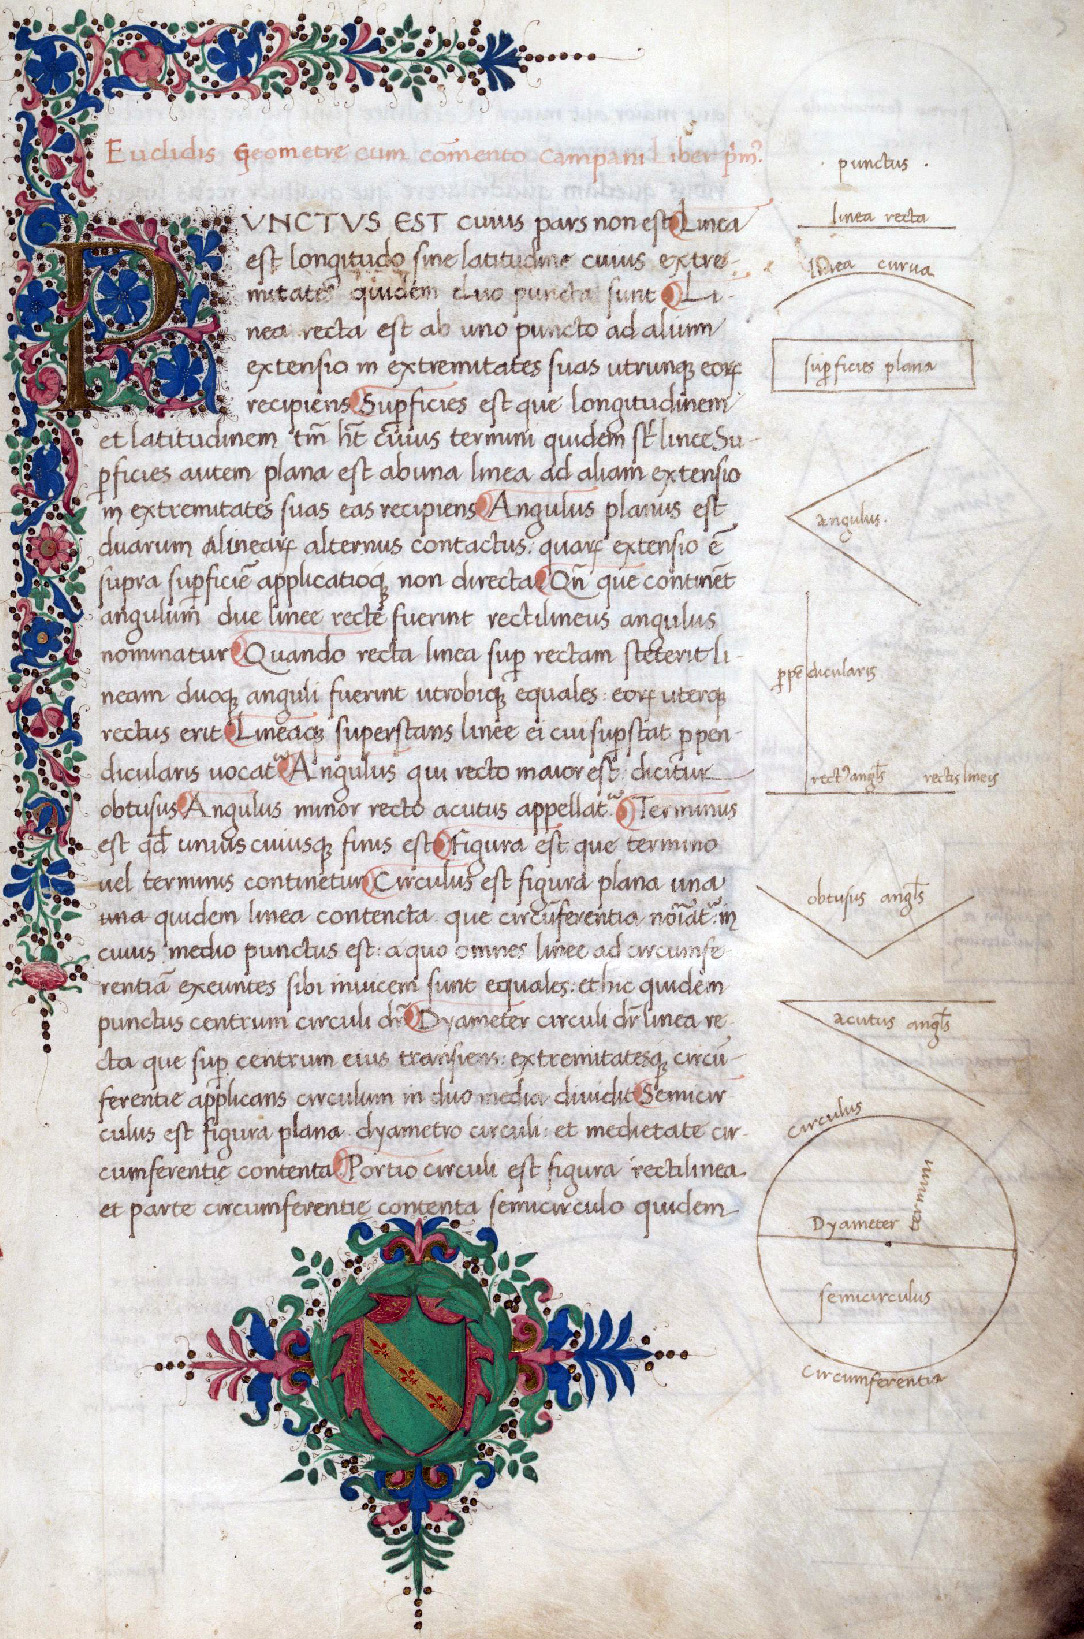 Euclidis Geometre cum cōmento Campani Liber pͥmꝰ.
PUNCTVS EST cuius pars non est Linea
est longitudo sine latitudine cuius extre-
mitates quidem duo puncta sunt Li-
nea recta est ab uno puncto ad alium
extensio in extremitates suas utrunqꝫ eoꝝ
recipiens Suꝑficies est que longitudinem
et latitudinem tm̄ ht̄ cuius termini quidem st̄ linee Su-
ꝑficies autem plana est ab una linea ad aliam extensio
in extremitates suas eas recipiens Angulus planus est
duarum lineaꝝ alternus contactus: quaꝝ extensio ē
supra suꝑficiē applicatioqꝫ non directa Qn̄ que continēt
angulum due linee recte fuerint rectilineus angulus
nominatur Quando recta linea suꝑ rectam steterit li-
neam duoqꝫ anguli fuerint utrobiqꝫ equales: eoꝝ uterqꝫ
rectus erit Lineaqꝫ superstans linee ei cui suꝑstat ꝑpen-
dicularis uocat᷑ Angulus qui recto maior est: dicitur
obtusus Angulus minor recto acutus appellat᷑ Terminus
est qd̄ unius cuiusqꝫ finis est Figura est que termino
uel terminis continetur Circulus est figura plana una
una quidem linea contenta que circūferentia noīat᷑: in
cuius medio punctus est: a quo omnes linee ad circumfe
rentiā exeuntes sibi inuicem sunt equales: et hic quidem
punctus centrum circuli dr̄ Dyameter circuli dr̄ linea re
cta que suꝑ centrum eius transiens: extremitatesqꝫ circū-
ferentie applicans circulum in duo media diuidit Semicir
culus est figura plana dyametro circuli: et medietate cir-
cumferentie contenta Portio circuli est figura rectilinea
et parte circumferentie contenta semicirculo quidem
· punctus ·
linea recta
linea curua
suꝑficies plana
angulus·
ꝑpēdicularis
rectꝰ angl̄s rectis lineis
obtusus angl̄s
acutus angl̄s
circulus
termini
Dyameter
semicirculus
circumferentia